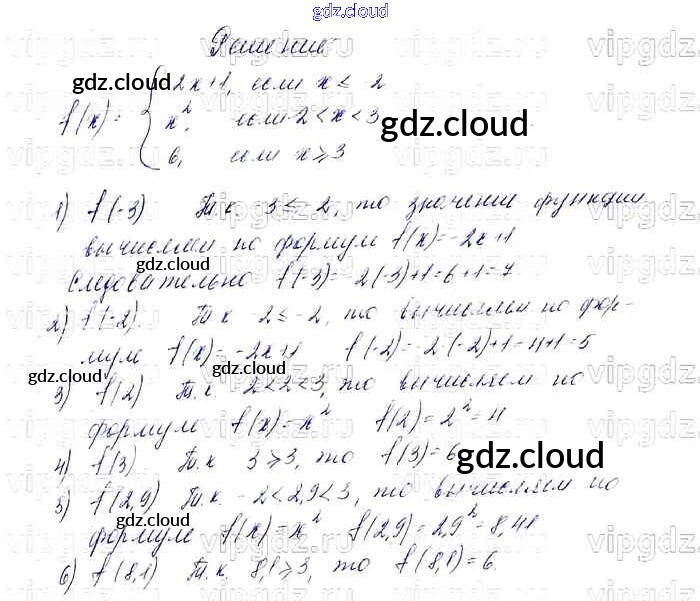 gdz.cloud
Решение
gdz.cloud
-2x+1, если x ≤ -2
f(x) = { x², если -2 < x < 3
gdz.cloud
6, если x ≥ 3
1) f(-3) Т.к. -3 ≤ -2, то значение функции
вычисляем по формуле f(x) = -2x+1
gdz.cloud
Следовательно f(-3) = -2(-3)+1=6+1=7
2) f(-2). Т.к. -2 ≤ -2, то вычисляем по фор-
муле f(x) = -2x+1 f(-2) = -2·(-2)+1=4+1=5
gdz.cloud
gdz.cloud
3) f(2) Т.к. -2<2<3, то вычисляем по
формуле f(x) = x² f(2) = 2² = 4
4) f(3). Т.к. 3 ≥ 3, то f(3) = 6
gdz.cloud
5) f(2,9) Т.к. -2<2,9<3, то вычисляем по
gdz.cloud
формуле f(x) = x² f(2,9) = 2,9² = 8,41
6) f(8,1) Т.к. 8,1 ≥ 3, то f(8,1) = 6.